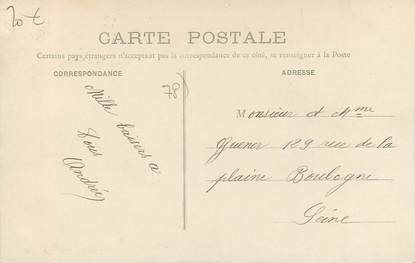 20 €
CARTE POSTALE
Certains pays étrangers n'acceptant pas la correspondance de ce côté, se renseigner à la Poste
CORRESPONDANCE
ADRESSE
78
Mille baisers a
tous
(André)
Monsieur et Mme
Quener 129 rue de la
plaine Boulogne
Seine